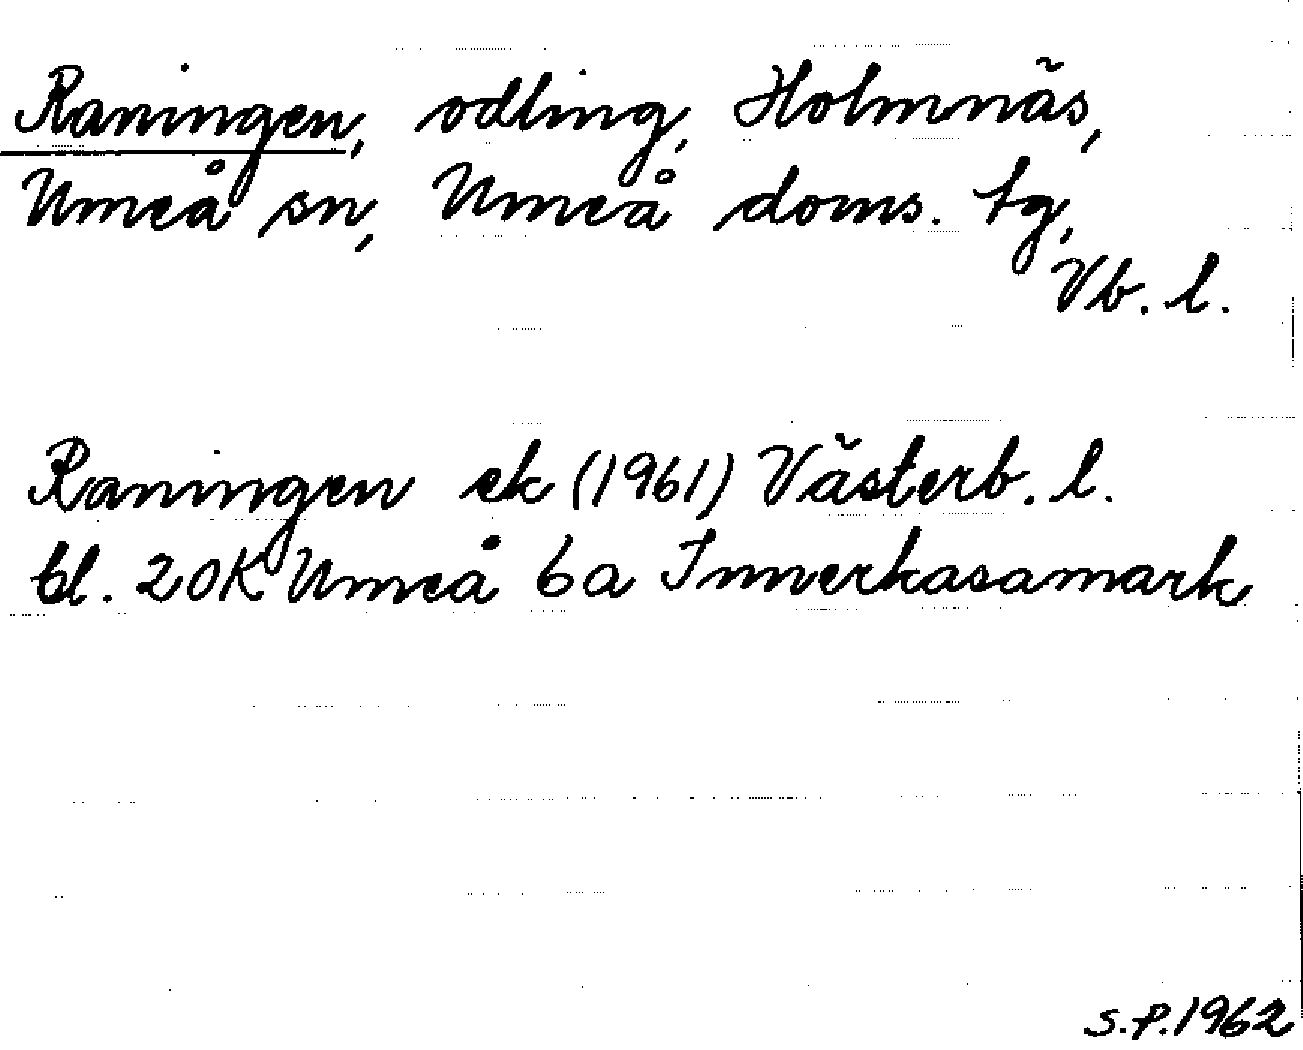 Raningen, odling, Holmnäs,
Umeå sn, Umeå doms. tg,
Vb. l.
Raningen ek (1961) Västerb. l.
bl. 20K Umeå 6a Innerkasamark
S.P. 1962